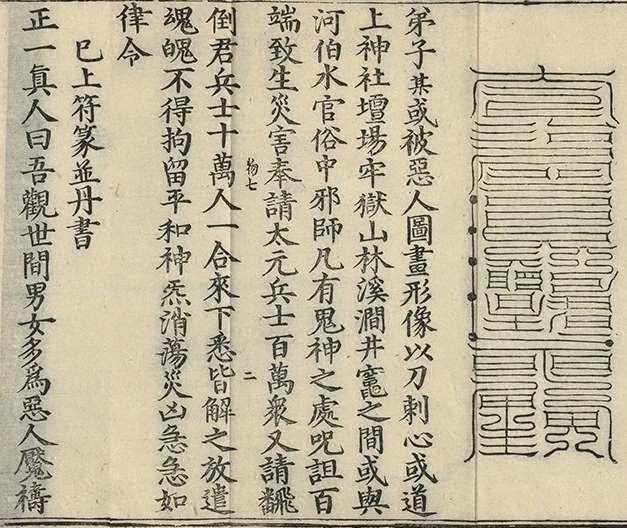 弟子某或被惡人圖畫形像以刀刺心或道
上神社壇場牢獄山林溪澗井竈之間或與
河伯水官俗中邪師凡有鬼神之處呪詛百
端致生災害奉請太元兵士百萬衆又請翻
倒君兵士十萬人一合來下悉皆解之放遣
物七
二
魂魄不得拘留平和神炁消蕩災凶急急如
律令
巳上符篆並丹書
正一眞人曰吾觀世間男女多爲惡人魘禱